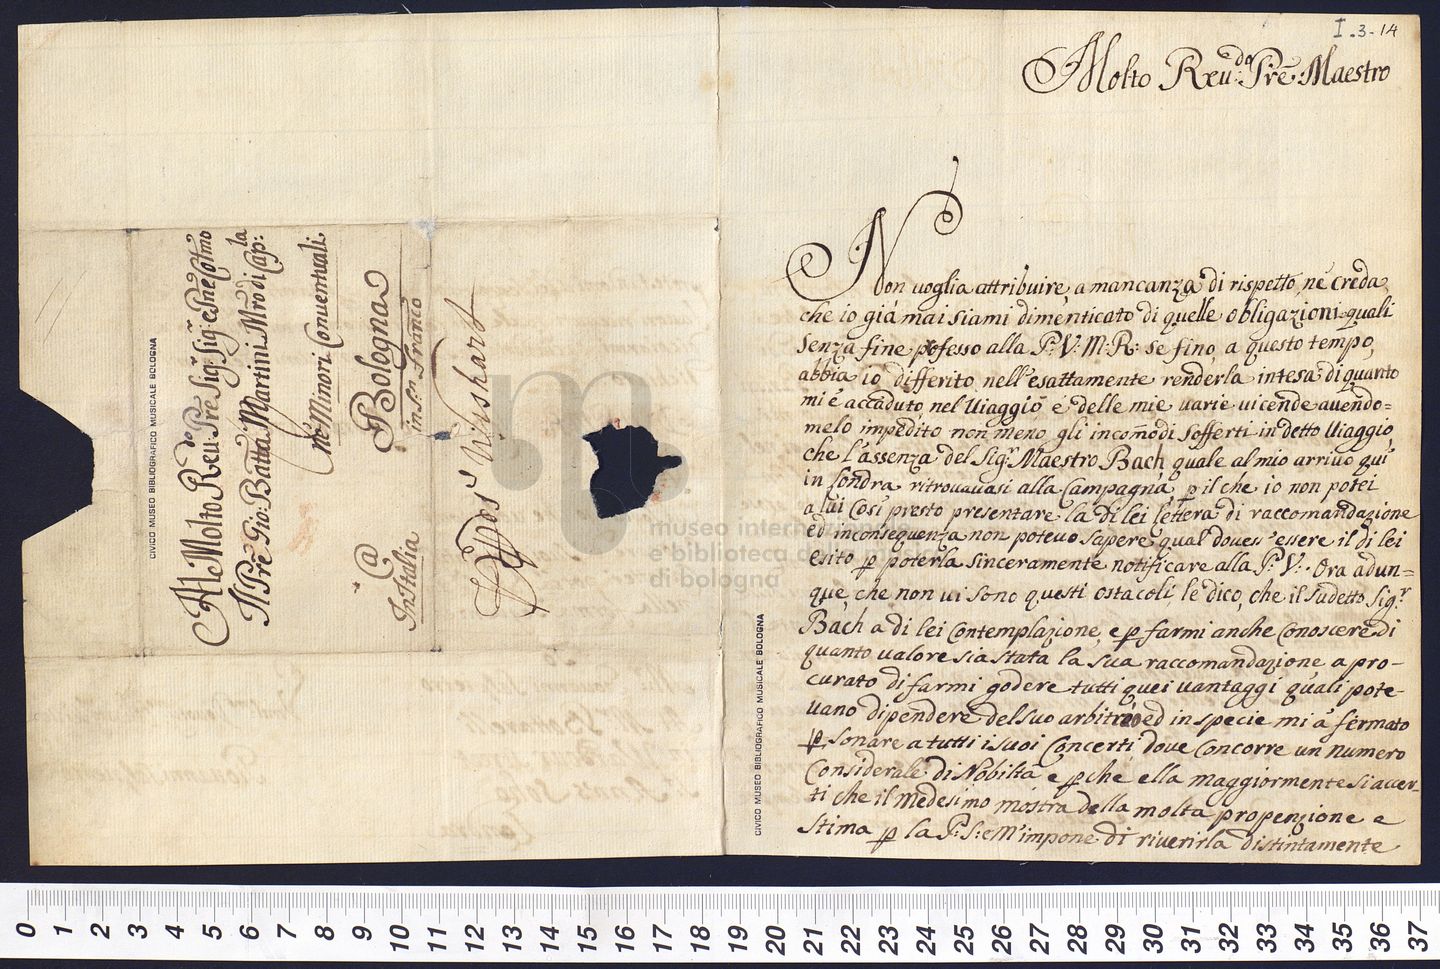 I.3-14
Molto Reu:do Prē Maestro
Non voglia attribuire, a mancanza di rispetto, né creda
che io già mai siami dimenticato di quelle obligazioni quali
senza fine pofesso alla P: V: M: R: se fino, a questo tempo,
abbia io differito nell'esattamente renderla intesa di quanto
mi é accaduto, nel Uiaggio é delle mie varie vicende avendo=
melo impedito non meno, gli incom̄odi sofferti in detto Uiaggio,
che l'assenza del Sigr Maestro Bach quale al mio arrivo qui
in Londra ritrouauasi alla Campagna, p il che io non potei
a lui Così presto presentare la di lei lettera di raccomandazione
ed inconseguenza non potevo sapere qual doues'essere il di lei
esito p poterla sinceramente notificare alla P: V:. Ora adun=
que, che non ui sono questi ostacoli, le dico, che il sudetto Sigr
Bach a di lei Contemplazione, e p farmi anche Conoscere di
quanto valore sia stata la sua raccomandazione a pro-
curato di farmi godere tutti quei vantaggi quali pote-
vano dipendere del suo arbitrio ed in specie mi a fermato
p sonare a tutti i suoi Concerti, dove Concorre un numero
Considerale di Nobiltà e pché ella maggiormente si accer-
ti che il medesimo mostra della molta propenzione e
stima p la P: S: e Mi impone di riverirla distintamente
Al Molto Reudo Prē Sigr Sigr: e Pne Colmo
Il Prē Gio: Batta Martini Mro di Capla:
ne Minori Conventuali
Bologna
in Sn Franco
@
In Italia
Wishart
CIVICO MUSEO BIBLIOGRAFICO MUSICALE BOLOGNA
CIVICO MUSEO BIBLIOGRAFICO MUSICALE BOLOGNA
museo internazionale
e biblioteca della musica
di bologna
0 1 2 3 4 5 6 7 8 9 10 11 12 13 14 15 16 17 18 19 20 21 22 23 24 25 26 27 28 29 30 31 32 33 34 35 36 37